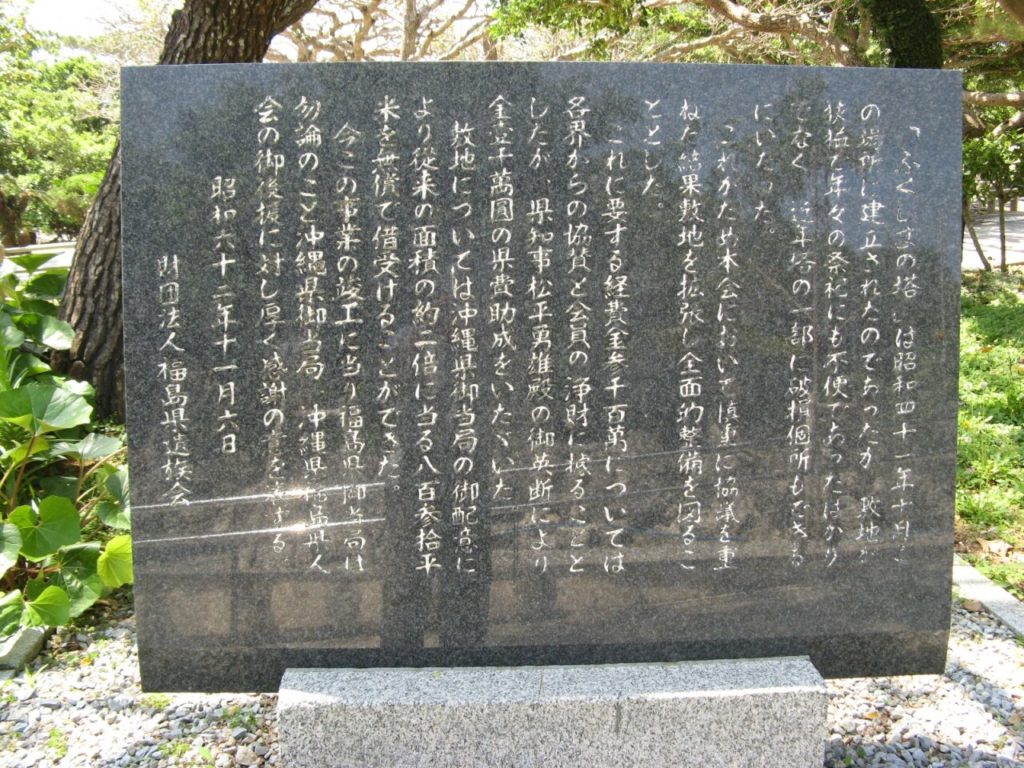 「ふくしまの塔」は昭和四十一年十月こ
の場所に建立されたのであったが 敷地が
狭隘で年々の祭祀にも不便であったばかり
でなく 近年塔の一部に破損個所もできる
にいたった。
これがため本会において慎重に協議を重
ねた結果敷地を拡張し全面的整備を図るこ
ととした。
これに要する経費金参千百萬については
各界からの協賛と会員の浄財に據ることと
したが、県知事松平勇雄殿の御英断により
金壹千萬圓の県費助成をいたゞいた
敷地については沖縄県御当局の御配意に
より従来の面積の約二倍に当る八百参拾平
米を無償で借受けることができた。
今この事業の竣工に当り福島県御当局は
勿論のこと沖縄県御当局 沖縄県福島県人
会の御後援に対し厚く感謝の意を表する
昭和六十二年十一月六日
財団法人福島県遺族会